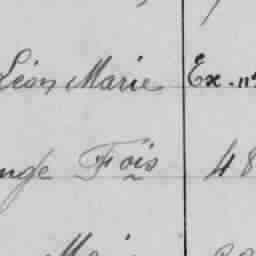 Léon Marie Ex. n°
nge Fois 48